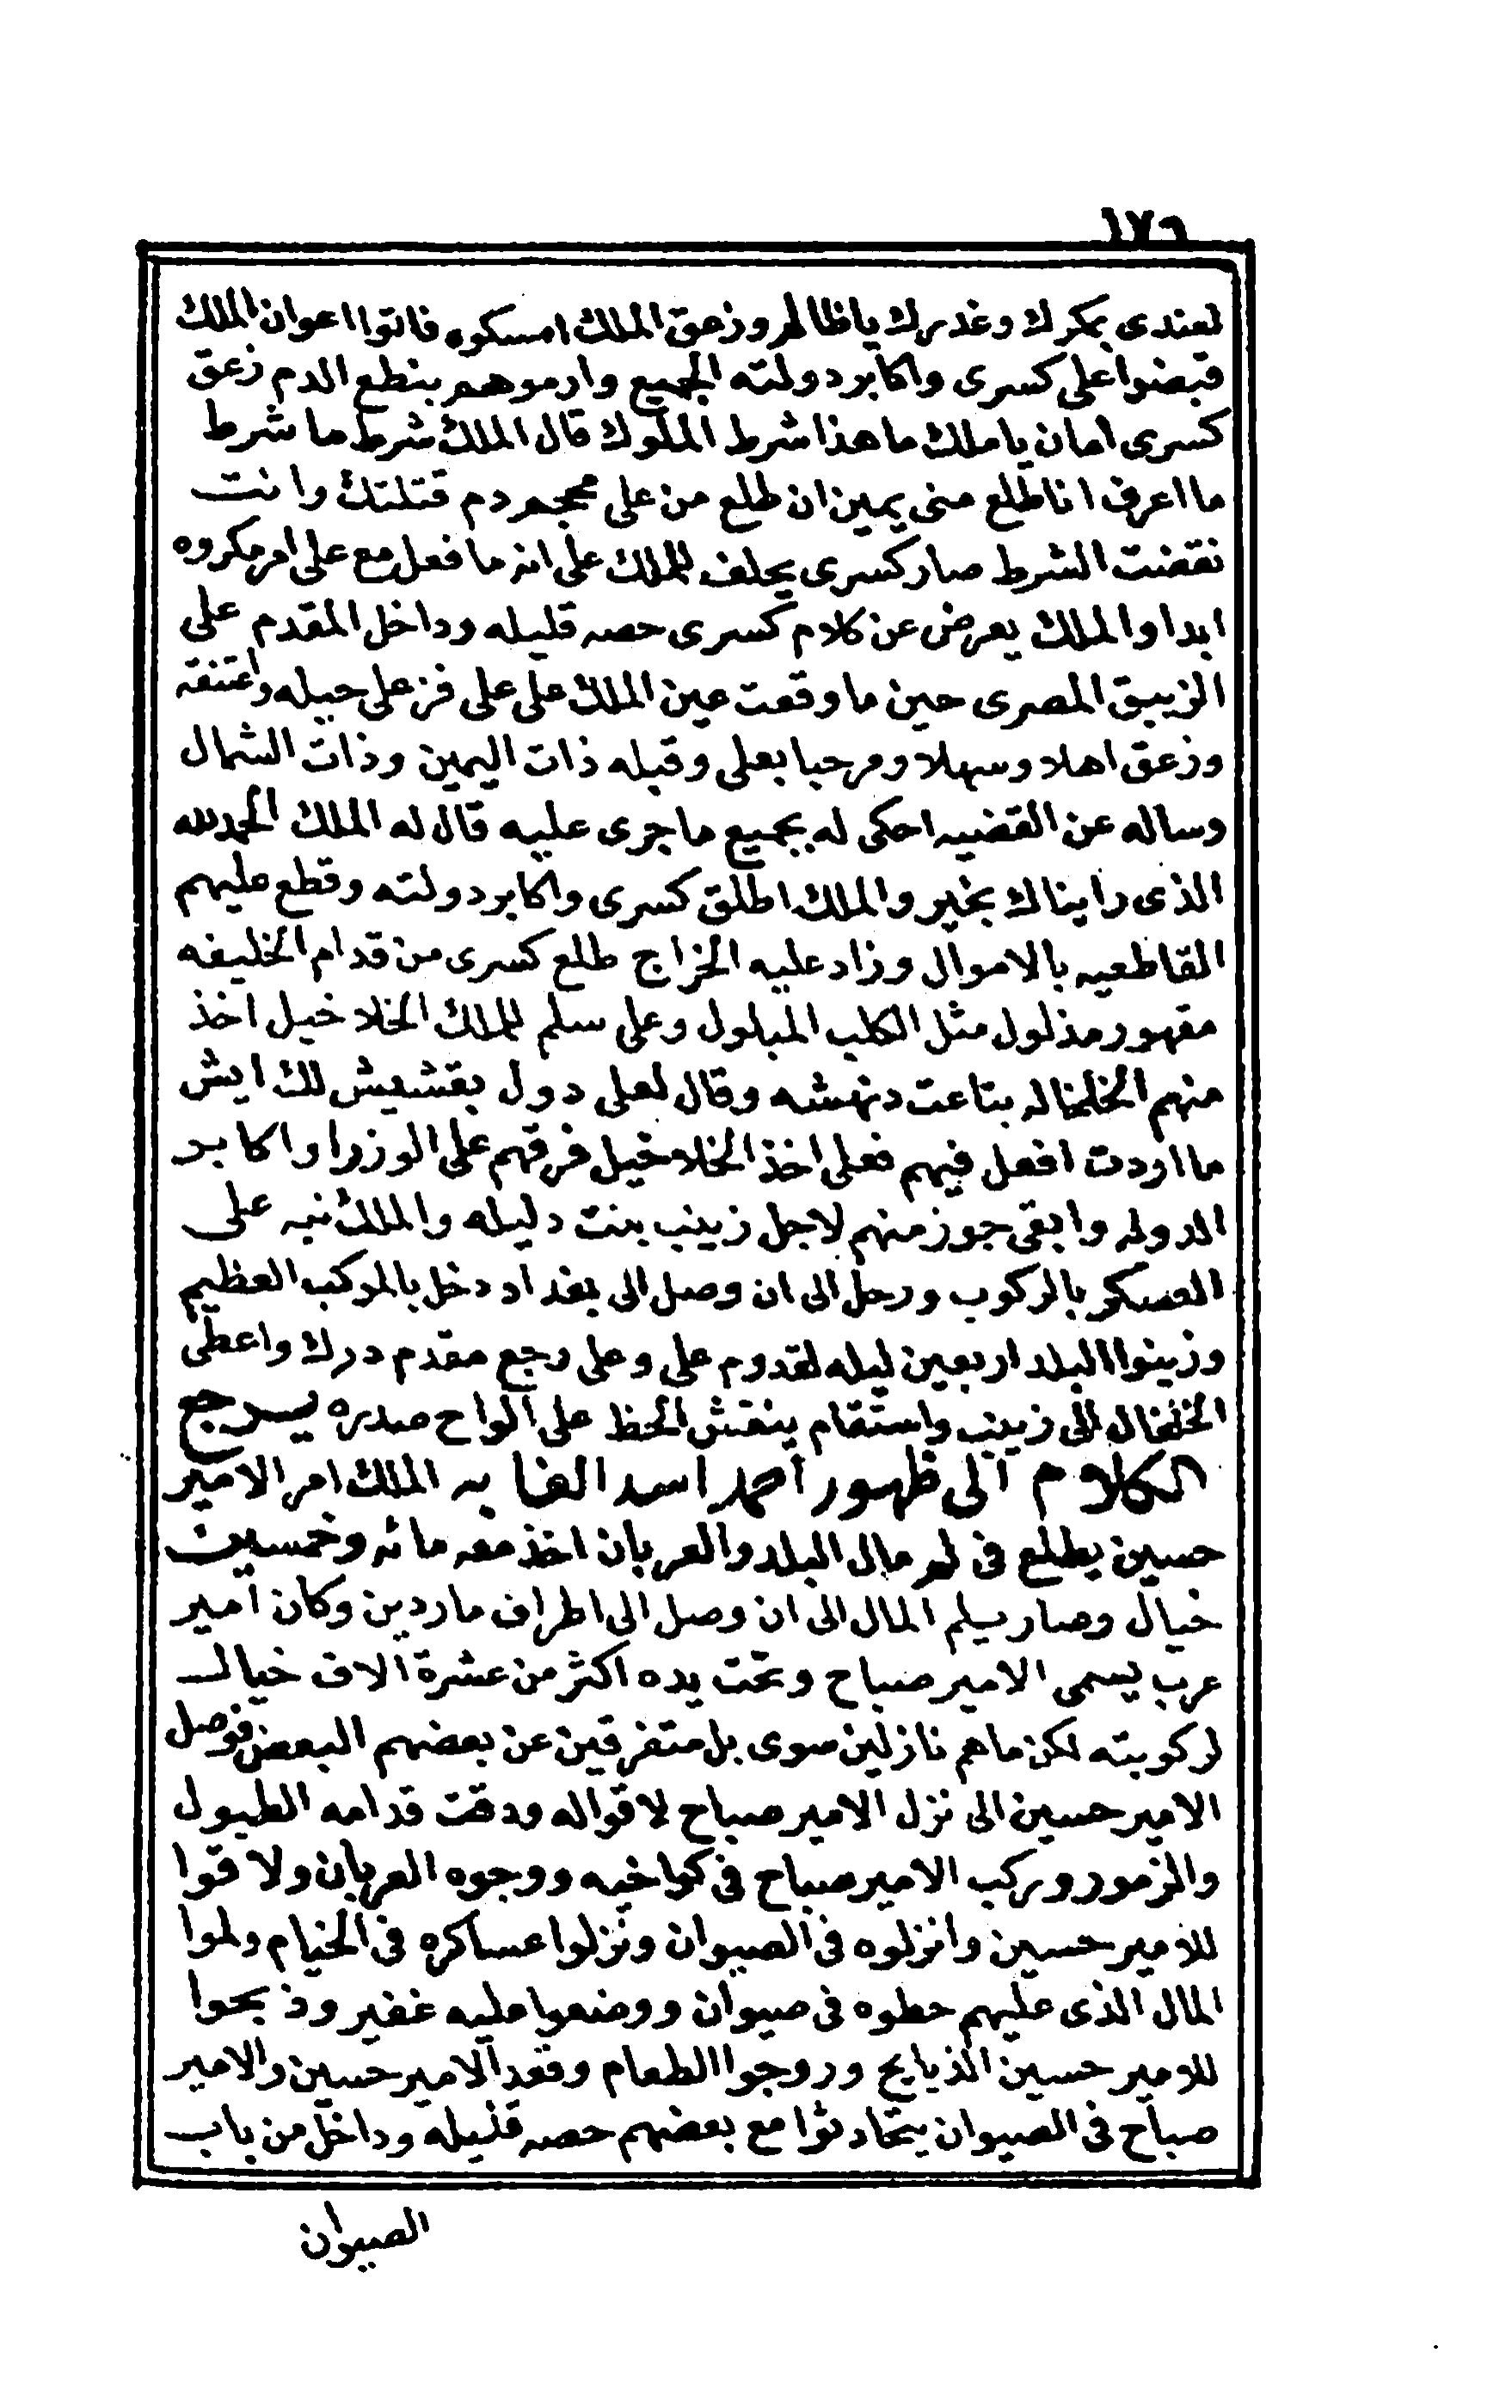 ١٧٦
لعندى بمكرك وغدرك ياظالم وزعق الملك امسكوه فاتوا اعوان الملك
قبضوا على كسرى واكابر دولته الجميع وارموهم بنطع الدم زعق
كسرى امان ياملك ماهذا شرط الملوك قال الملك شرط ما شرط
ما اعرف انا طلع منى يمين ان طلع من على محجم دم قتلتك وانت
نقضت الشرط صار كسرى يحلف للملك على انه ما فعل مع على امر مكروه
ابدا والملك يعرض عن كلام كسرى حصه قليله وداخل المقدم على
الزيبق المصرى حين ما وقعت عين الملك على على فز على حيله واعتنقه
وزعق اهلا وسهلا ومرحبا بعلى وقبله ذات اليمين وذات الشمال
وساله عن القضيه احكى له بجميع ما جرى عليه قال له الملك الحمدلله
الذى رايناك بخير والملك اطلق كسرى واكابر دولته وقطع عليهم
المقاطعيه بالاموال وزاد عليه الخراج طلع كسرى من قدام الخليفه
مقهور مذلول مثل الكلب المبلول وعلى سلم للملك الخلاخيل اخذ
منهم الخلخاله بتاعت دنهشه وقال لعلى دول بقشيش لك ايش
ما اردت افعل فيهم فعلى اخذ الخلاخيل فرقهم على الوزرا واكابر
الدوله وابقى جوز منهم لاجل زينب بنت دليله والملك نبه على
العسكر بالركوب ورحل الى ان وصل الى بغداد دخل بالموكب العظيم
وزينوا البلد اربعين ليله لقدوم على وعلى رجع مقدم درك واعطى
الخلخال الى زينب واستقام ينقش الحظ على الواح صدره يسرجع
الكلام الى ظهور احمد اسد الغابه الملك امر الامير
حسين يطلع فى لم مال البلد والعربان اخذ معه مائه وخمسين
خيال وصار يسلم المال الى ان وصل الى اطراف ماردين وكان امير
عرب يسمى الامير صباح وتحت يده اكثر من عشرة الاف خيال
لركوبته لكن ماهم نازلين سوى بل متفرقين عن بعضهم البعض فوصل
الامير حسين الى نزل الامير صباح لاقواله ودقت قدامه الطبول
والزمور وركب الامير صباح فى كواخيه ووجوه العربان ولاقوا
للامير حسين وانزلوه فى الصيوان ونزلوا عساكره فى الخيام ولموا
المال الذى عليهم حطوه فى صيوان ووضعوا عليه غفير وذبحوا
للامير حسين الذبايح وروجوا الطعام وقعد الامير حسين والامير
صباح فى الصيوان يتحادثوا مع بعضهم حصه قليله وداخل من باب
الصيوان